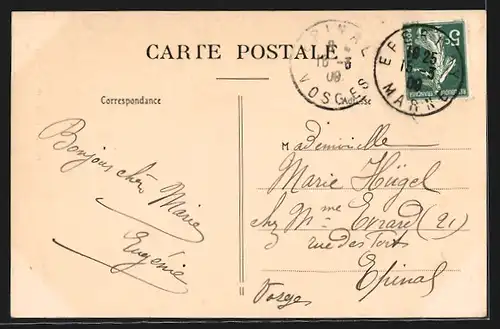 CARTE POSTALE
Correspondance
Adresse
EPINAL
16-3
09
VOSGES
EPERNAY
19 25
09
MARNE
5c
Bonjour chère Marie
Eugénie
Mademoiselle
Marie Hügel
chez Mme Evrard (21)
rue des Forts
Epinal
Vosges